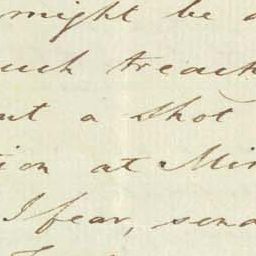 might be
such treach
out a shot
tion at Mir
I fear, send